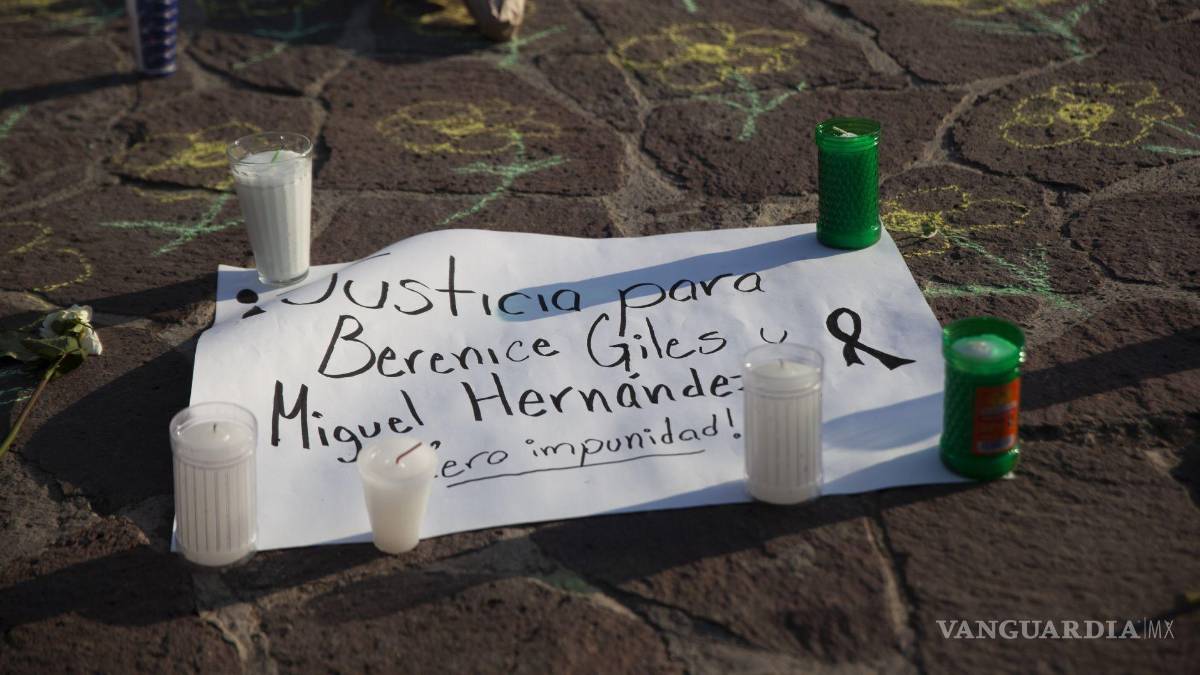 ¡Justicia para
Berenice Giles y
Miguel Hernández
Cero impunidad!
VANGUARDIA|MX